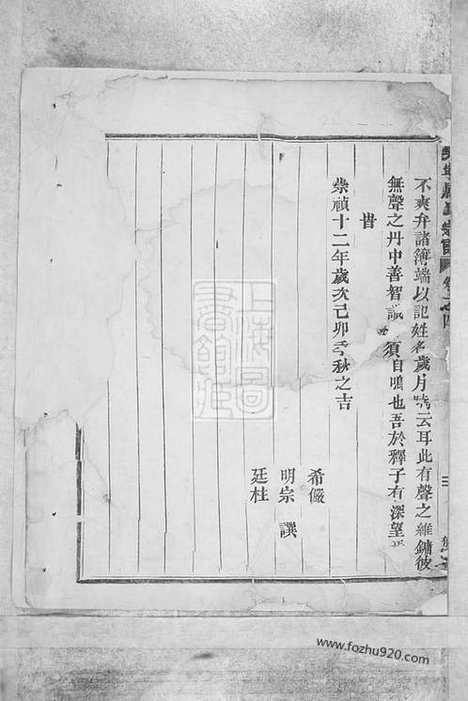 不爽弁諸簿端以記姓名歲月曉云耳此有聲之維鏞彼
無聲之丹中善智 須自鳴也吾於釋子有深望
旹
崇禎十二年歲次己卯季秋之吉
希儼
明宗 撰
廷柱
上海圖書館藏
www.fozhu920.com